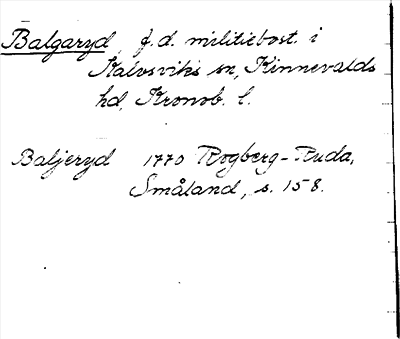 Balgaryd, f.d. militiebost. i
Kalvsviks sn, Kinnevalds
hd, Kronob. l.
Baljeryd 1770 Rogberg-Ruda,
Småland, s. 158.